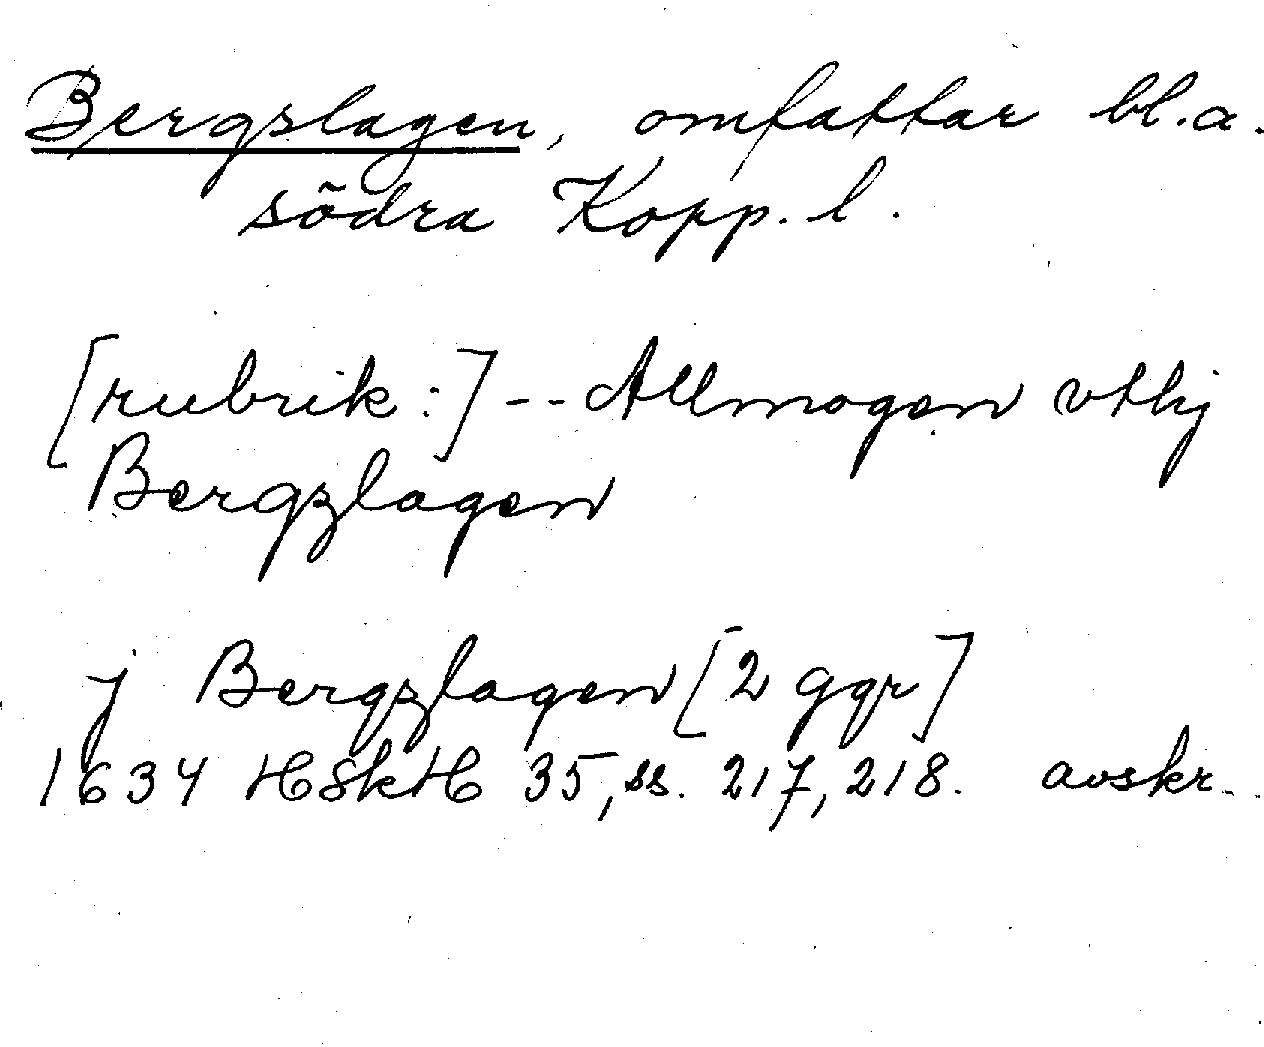 Bergslagen, omfattar bl.a.
södra Kopp. l.
[rubrik:] -- Allmogen vthj
Bergzlagen
j Bergzlagen [2 ggr]
1634 HSkH 35, ss. 217, 218. avskr.